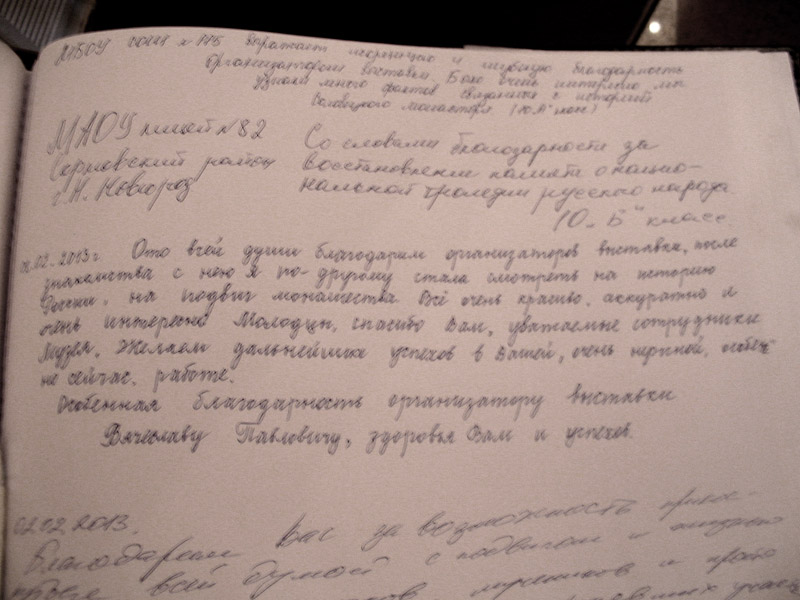 МБОУ СОШ № 176 выражает искреннюю и глубокую благодарность
организаторам выставки. Было очень интересно мы
узнали много фактов связанных с историей
Соловецкого монастыря (10 "А" класс)
МАОУ школа № 82
Сормовский район
г. Н. Новгород
Со словами благодарности за
восстановление памяти о нацио-
нальной трагедии русского народа
10 „Б" класс
02.2013 г. Ото всей души благодарим организаторов выставки, после
знакомства с нею я по-другому стала смотреть на историю
России, на подвиг монашества. Всё очень красиво, аккуратно и
очень интересно. Молодцы, спасибо Вам, уважаемые сотрудники
Музея. Желаем дальнейших успехов в Вашей, очень нужной, особен-
но сейчас, работе.
Особенная благодарность организатору выставки
Вячеславу Павловичу, здоровья Вам и успехов.
02.02.2013.
Благодарим Вас за возможность прикос-
всей с подвигом и
и просто